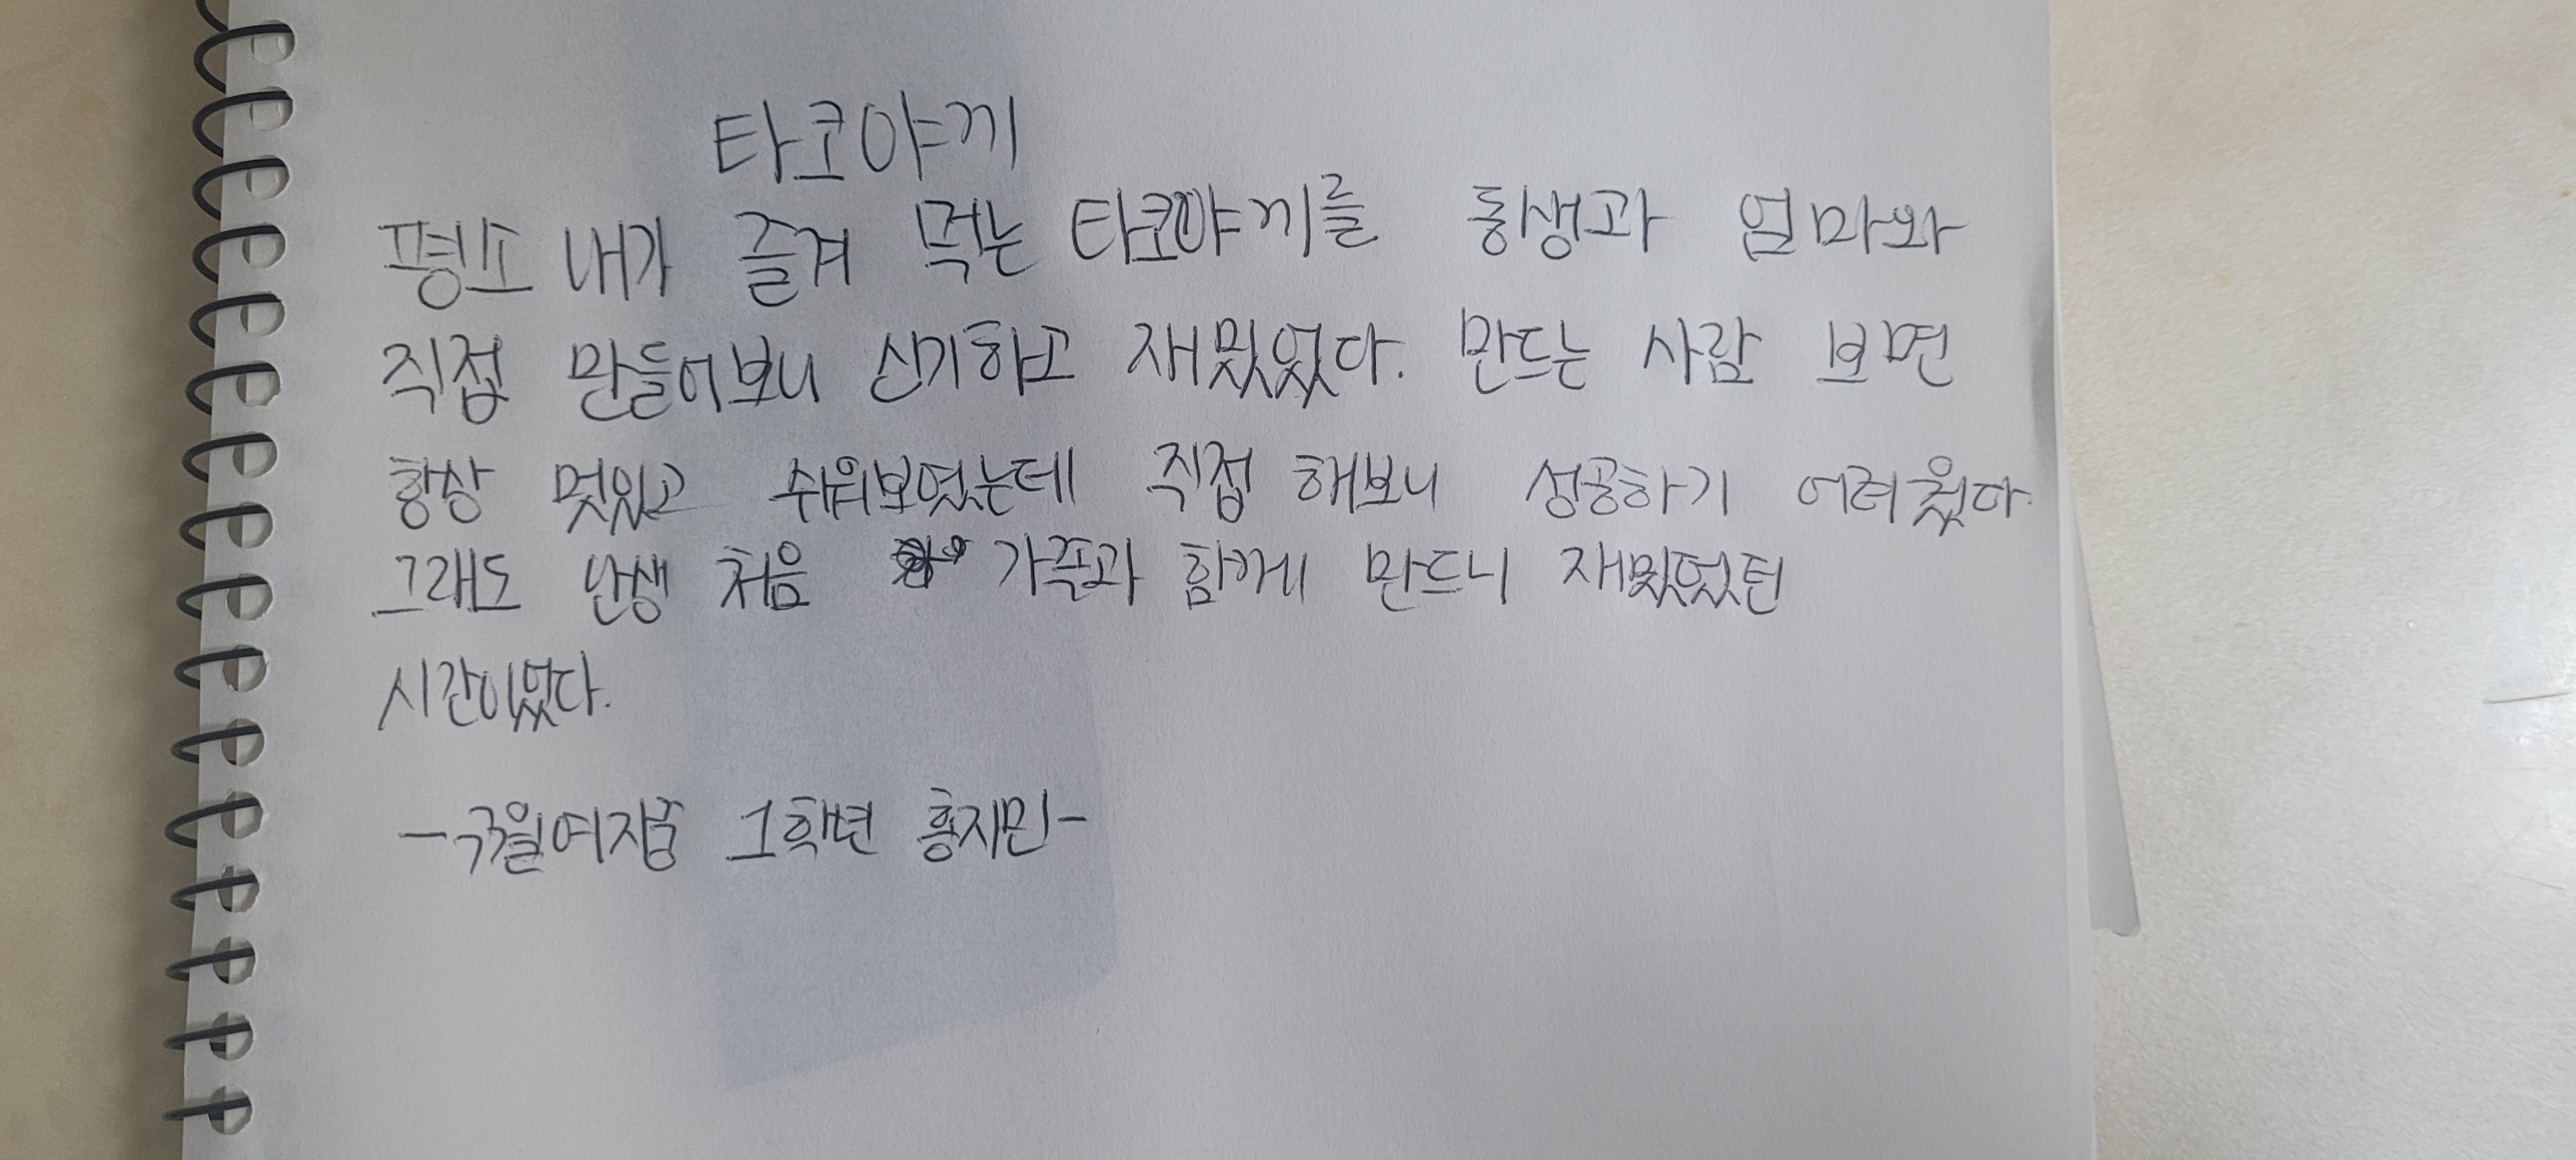 타코야끼
평소 내가 즐겨 먹는 타코야끼를 동생과 엄마와
직접 만들어보니 신기하고 재밌었다. 만드는 사람 보면
항상 멋있고 쉬워보였는데 직접 해보니 성공하기 어려웠다.
그래도 인생 처음 가족과 함께 만드니 재밌었던
시간이었다.
1학년 홍지민-